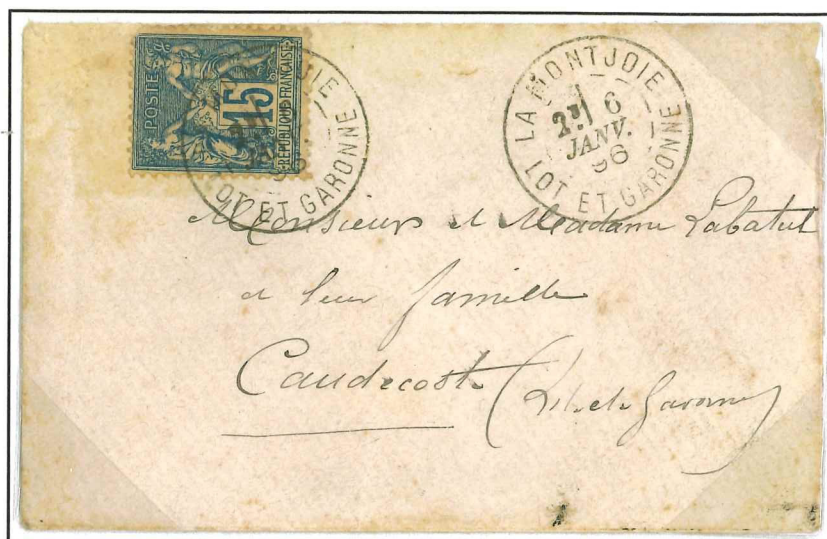 POSTES
15
REPUBLIQUE FRANÇAISE
OT ET GARONNE
LA MONTJOIE
6
JANV.
96
LOT ET GARONNE
Monsieur et Madame Labatut
et leur famille
Caudecoste (Lot et Garonne)